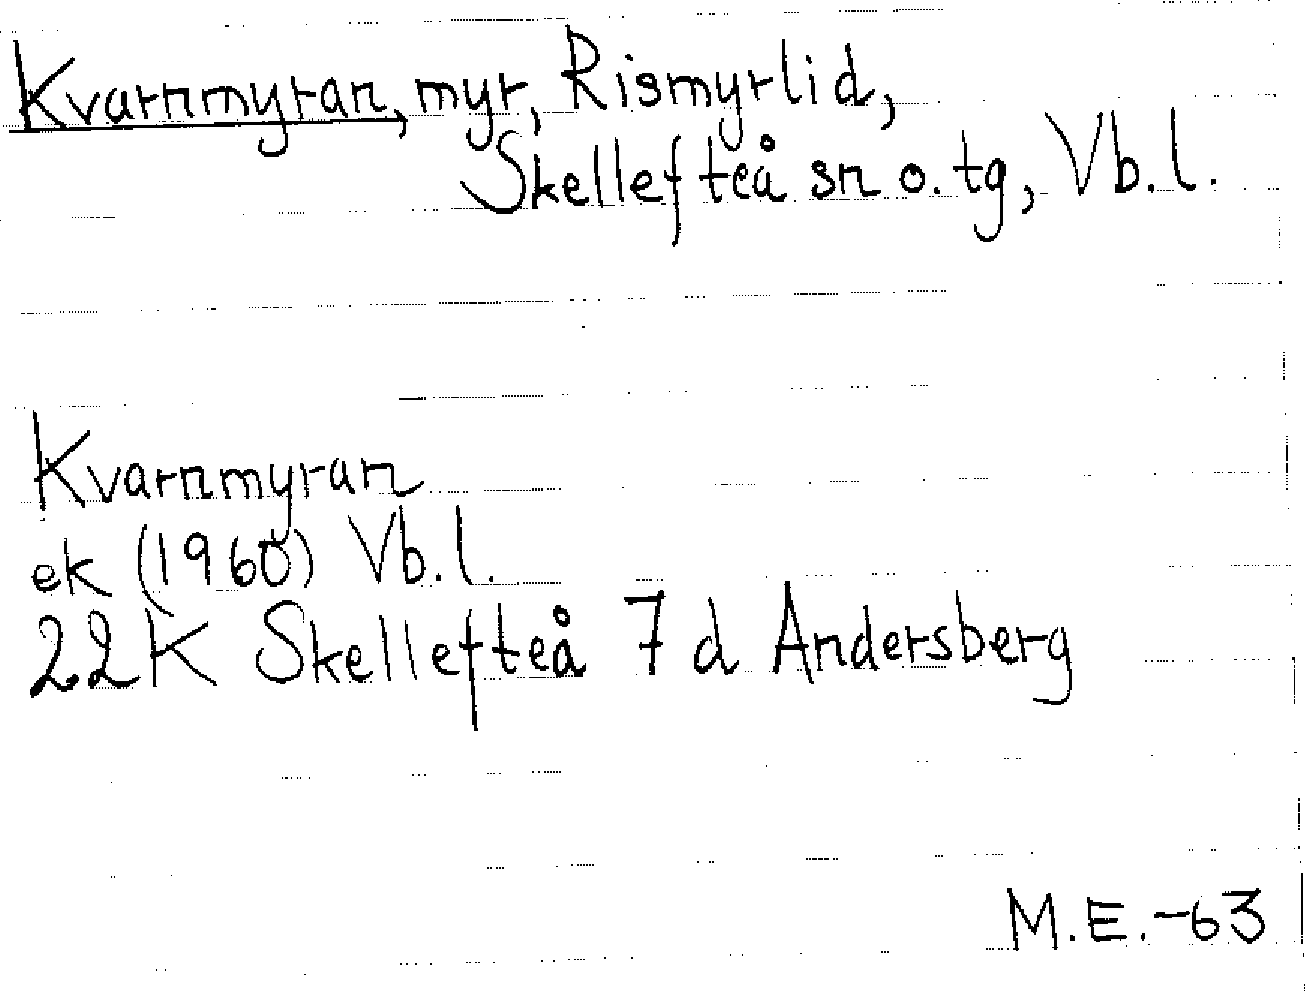 Kvarnmyran, myr, Rismyrlid,
Skellefteå sn o. tg, Vb. l.
Kvarnmyran
ek (1960) Vb. l.
22K Skellefteå 7 d Andersberg
M.E.-63